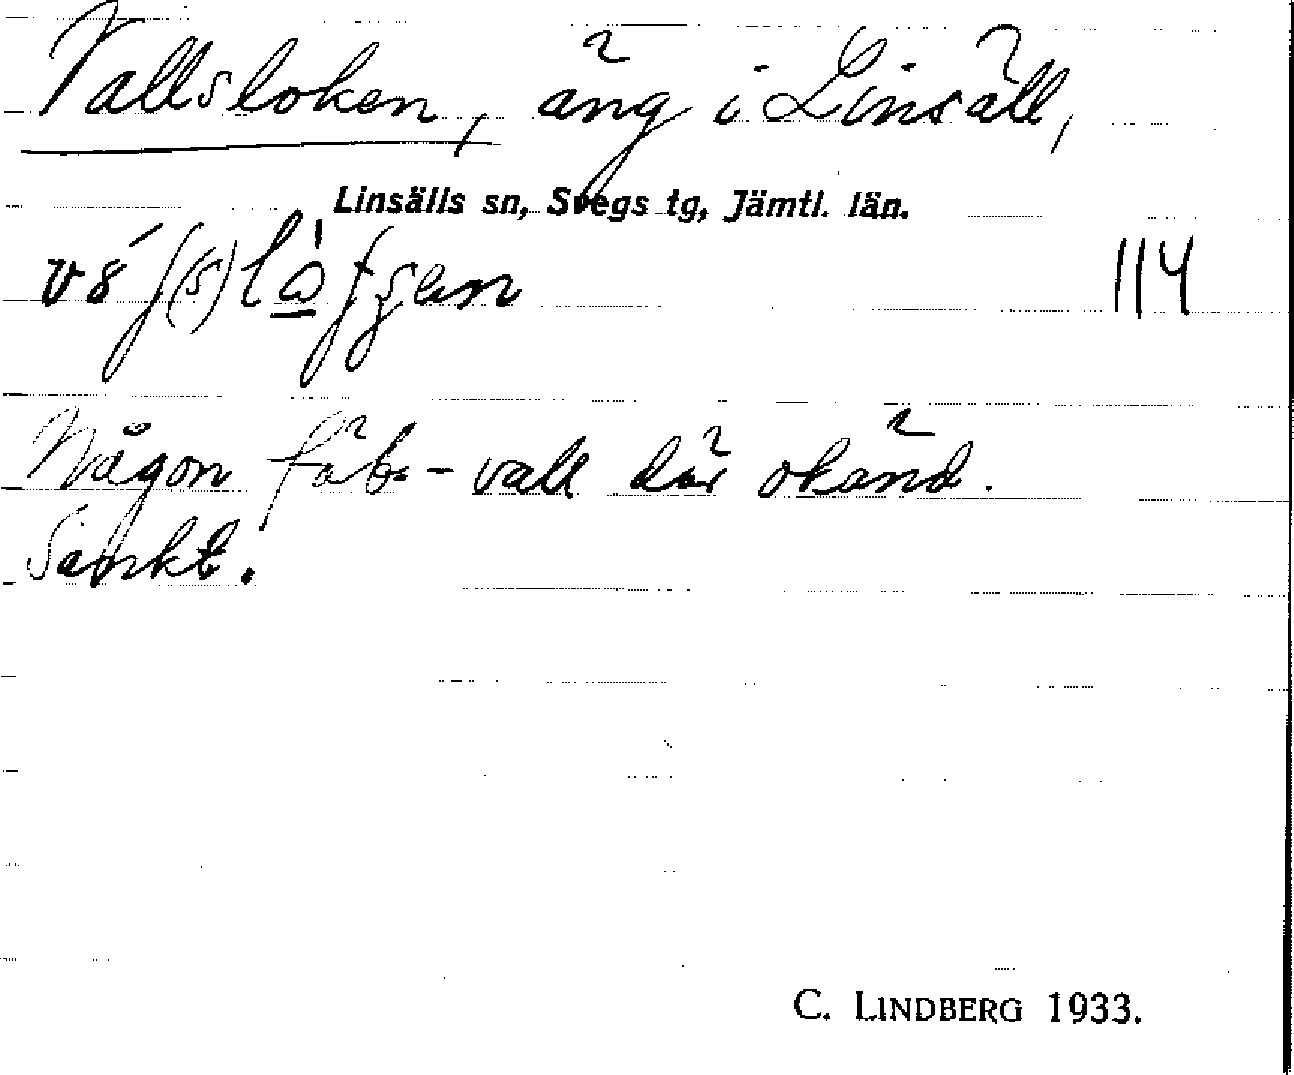 Vallsloken, äng i Linsäll,
Linsälls sn, Svegs tg, Jämtl. län.
114
Någon fäb.-vall där okänd.
Sankt.
C. LINDBERG 1933.